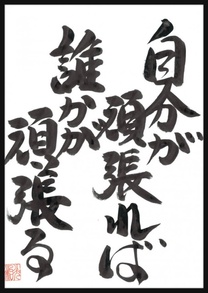 自分が
頑張れば
誰かが
頑張る